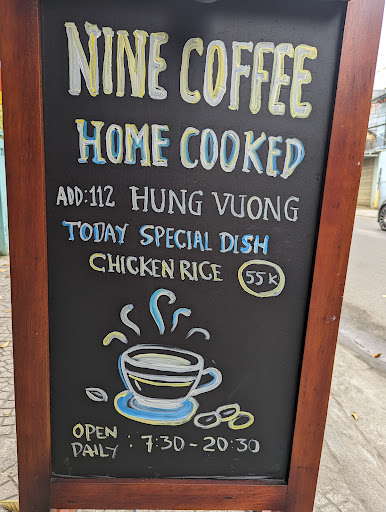 NINE COFFEE
HOME COOKED
ADD:112 HUNG VUONG
TODAY SPECIAL DISH
CHICKEN RICE 55K
OPEN
DAILY : 7:30 - 20:30